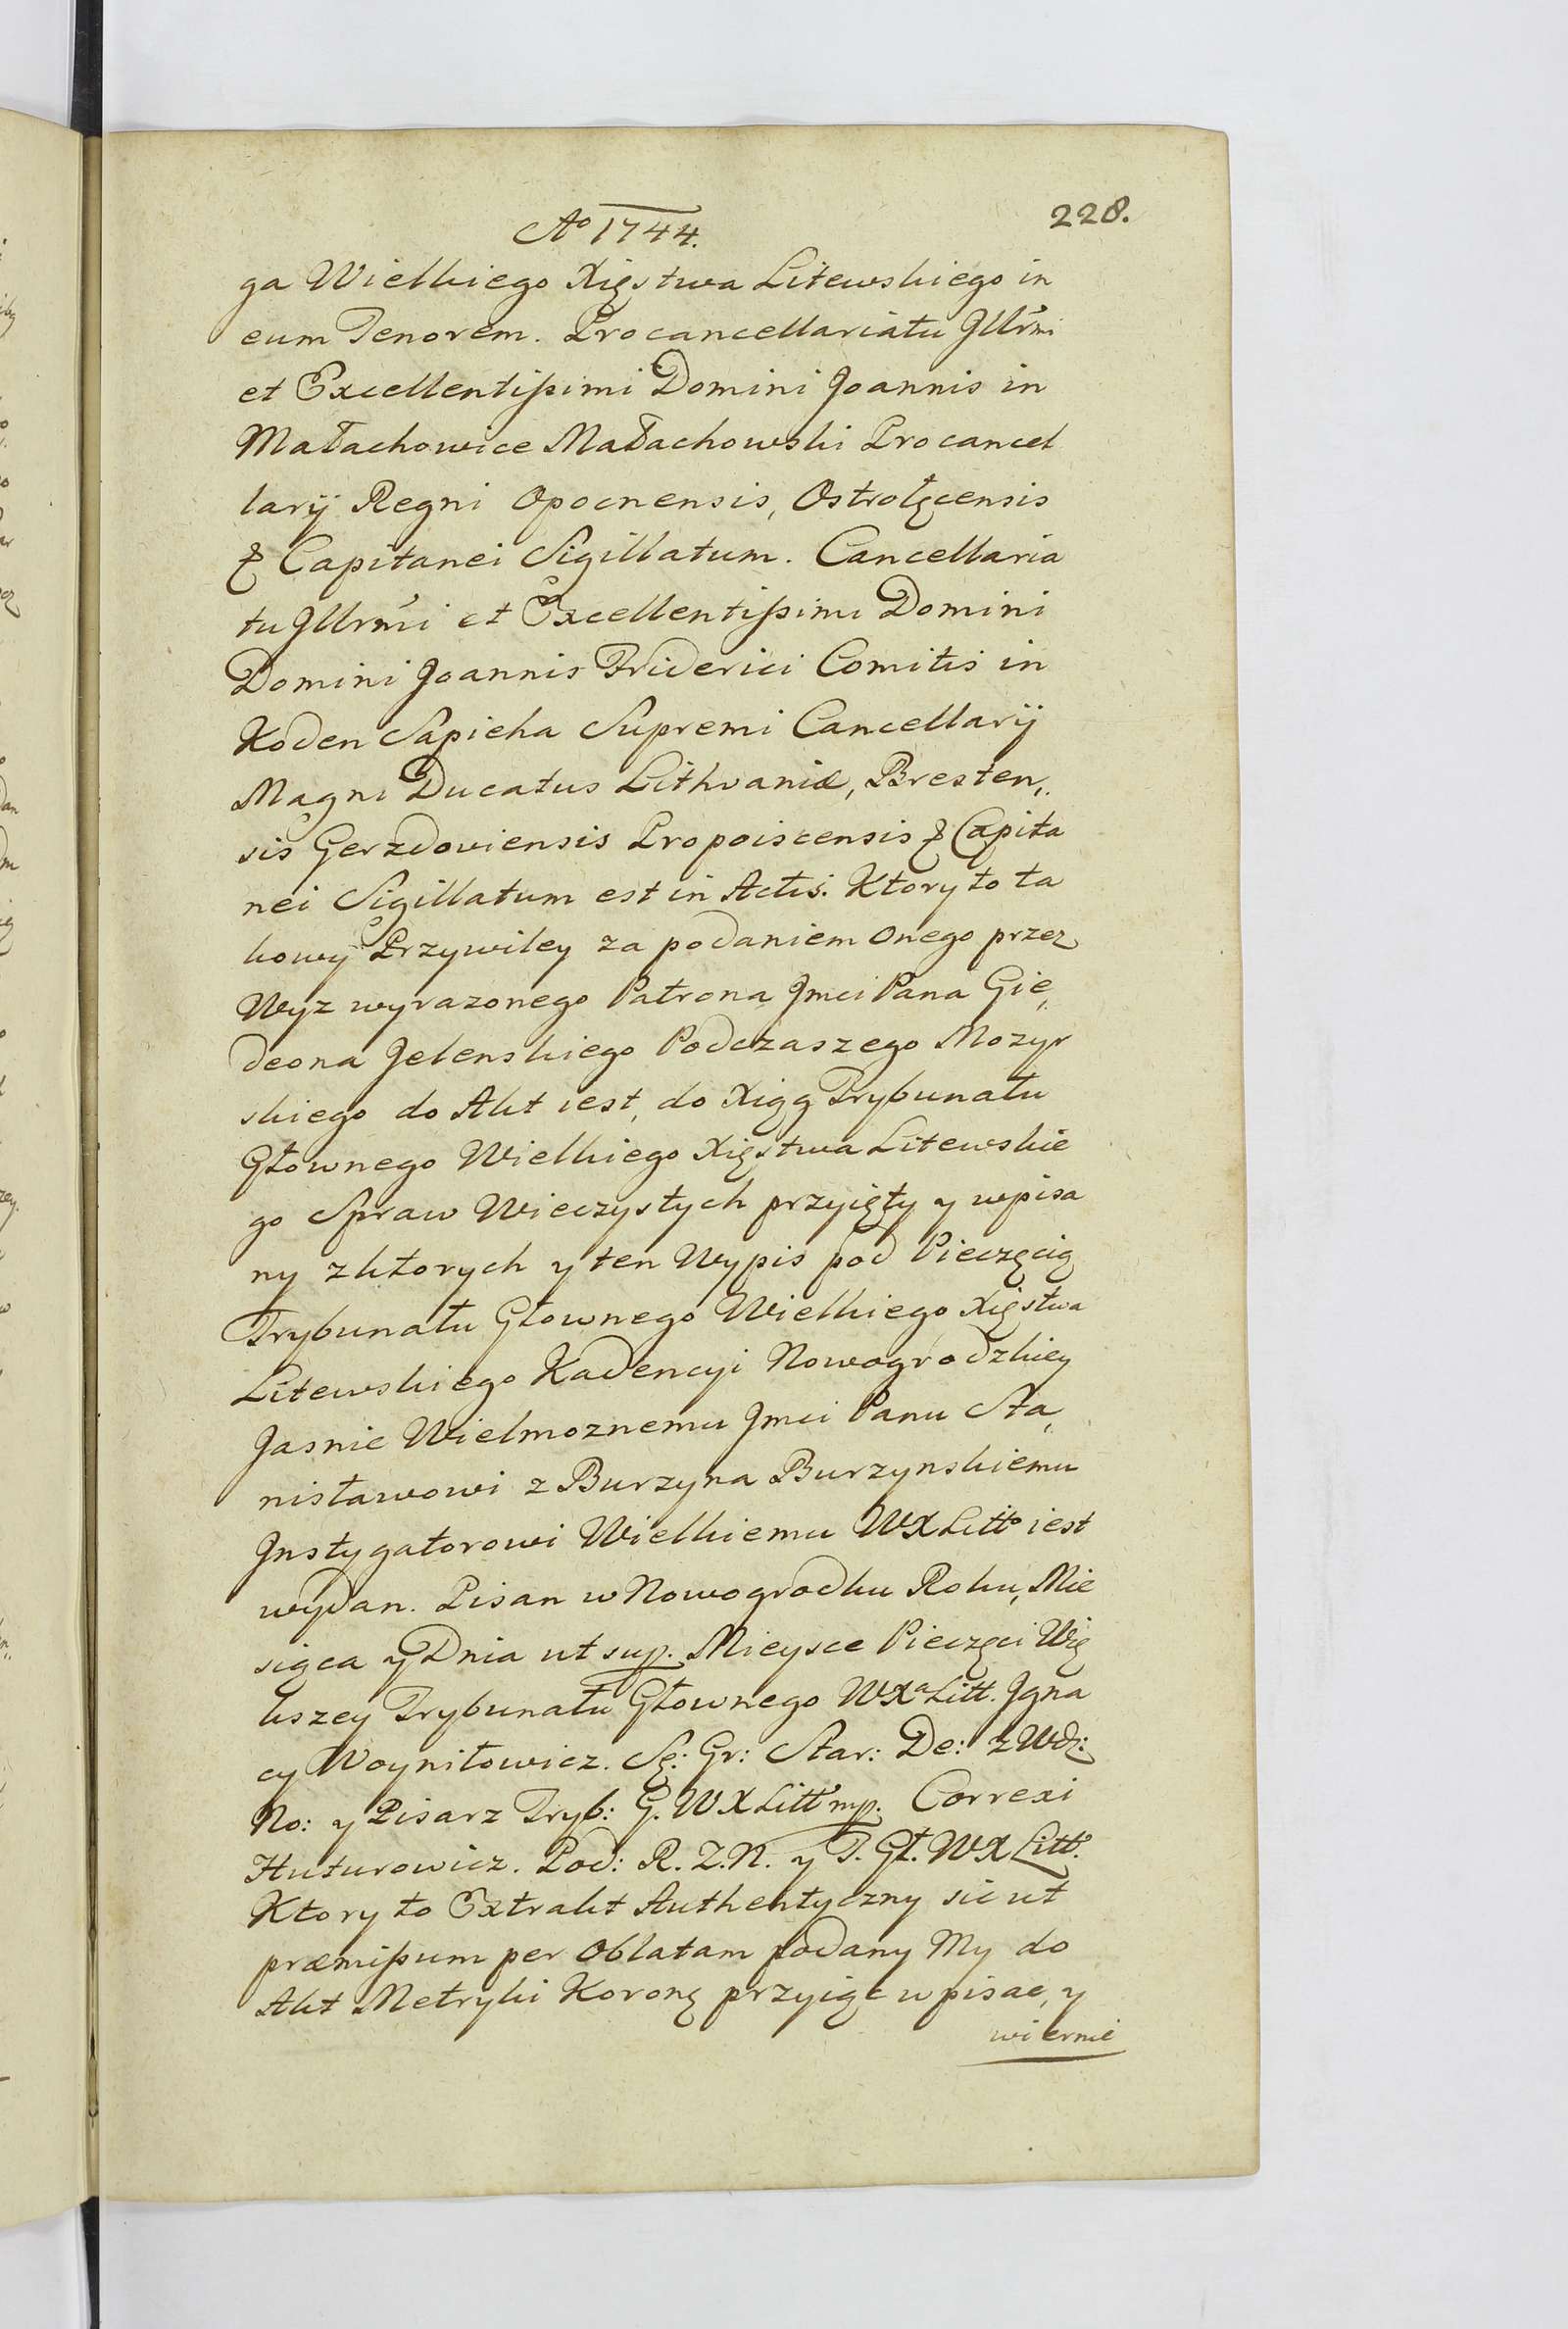 Ao 1744.
228.
ga Wielkiego Xięstwa Litewskiego in
eum Tenorem. Procancellariatu Jllrmi
et Excellentißimi Domini Joannis in
Małachowice Małachowski Procancel
larÿ Regni Opocnensis, Ostrołęcensis
& Capitanei Sigillatum. Cancellaria
tu Jllrmi et Excellentißimi Domini
Domini Joannis Friderici Comitis in
Koden Sapieha Supremi Cancellarÿ
Magni Ducatus Lithvaniæ, Bresten,,
sis Gerzdoviensis Propoiscensis & Capita
nei Sigillatum est in Actis. Ktory to ta
kowy Przywiley za podaniem onego przez
Wyz wyrazonego Patrona Jmci Pana Gie,,
deona Jelenskiego Podczaszego Mozyr
skiego do Akt iest, do Xiąg Trybunału
Głownego Wielkiego Xięstwa Litewskie
go Spraw Wieczystych przyięty y wpisa
ny zktorych y ten Wypis pod Pieczęcią
Trybunału Głownego Wielkiego Xięstwa
Litewskiego Kadencyi Nowogrodzkiey
Jasnie Wielmoznemu Jmci Panu Sta,,
nisławowi z Burzyna Burzynskiemu
Jnstygatorowi Wielkiemu WX Litto iest
wydan. Pisan w Nowogrodku Roku, Mie
siąca y Dnia ut sup. Mieysce Pieczęci Wię
kszey Trybunału Głownego WXa Litt. Jgna
cy Woyniłowicz. Sę: Gr: Star: De: z Wdz:
No: y Pisarz Tryb: G. WX Litt mp. Correxi
Huturowicz. Pod: R. Z. N. y T. Gł. WX Litto.
Ktory to Extrakt Authentyczny sic ut
præmißum per Oblatam podany My do
Akt Metryki Koronę przyiąc wpisac, y
wiernie